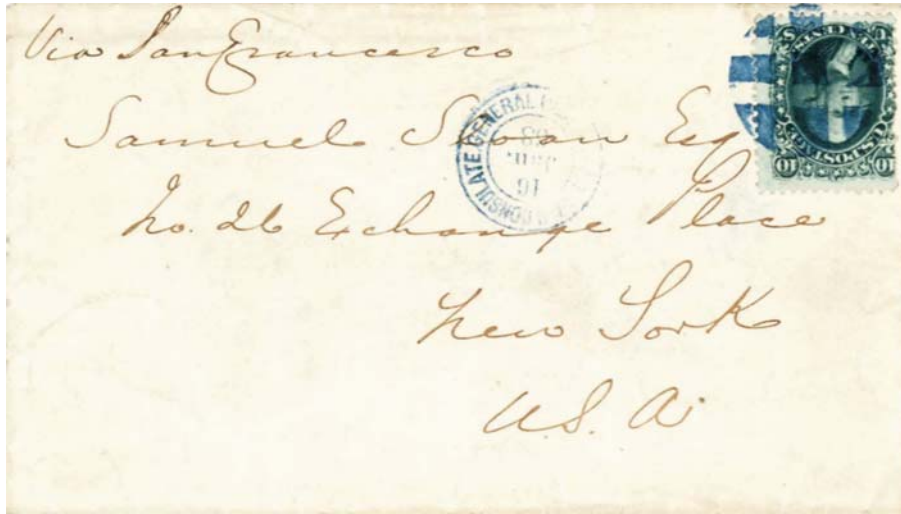 Via San Francesco
Samuel Sloan Esq
No. 26 Exchange Place
New York
U.S.A.
CONSULATE GENERAL
16
68
U.S. POSTAGE
10 10
U S